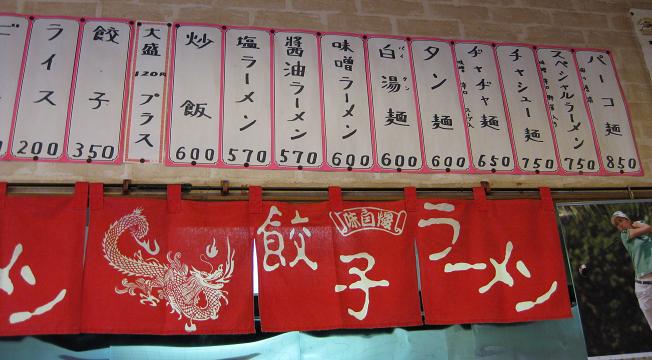 パーコ麺
850
スペシャルラーメン
750
チャシュー麺
750
ヂャヂャ麺
650
タン麺
600
白湯麺
パイ タン
600
味噌ラーメン
600
醤油ラーメン
570
塩ラーメン
570
炒飯
600
大盛
120円
プラス
餃子
350
ライス
200
味自慢
餃子
ラーメン
メン